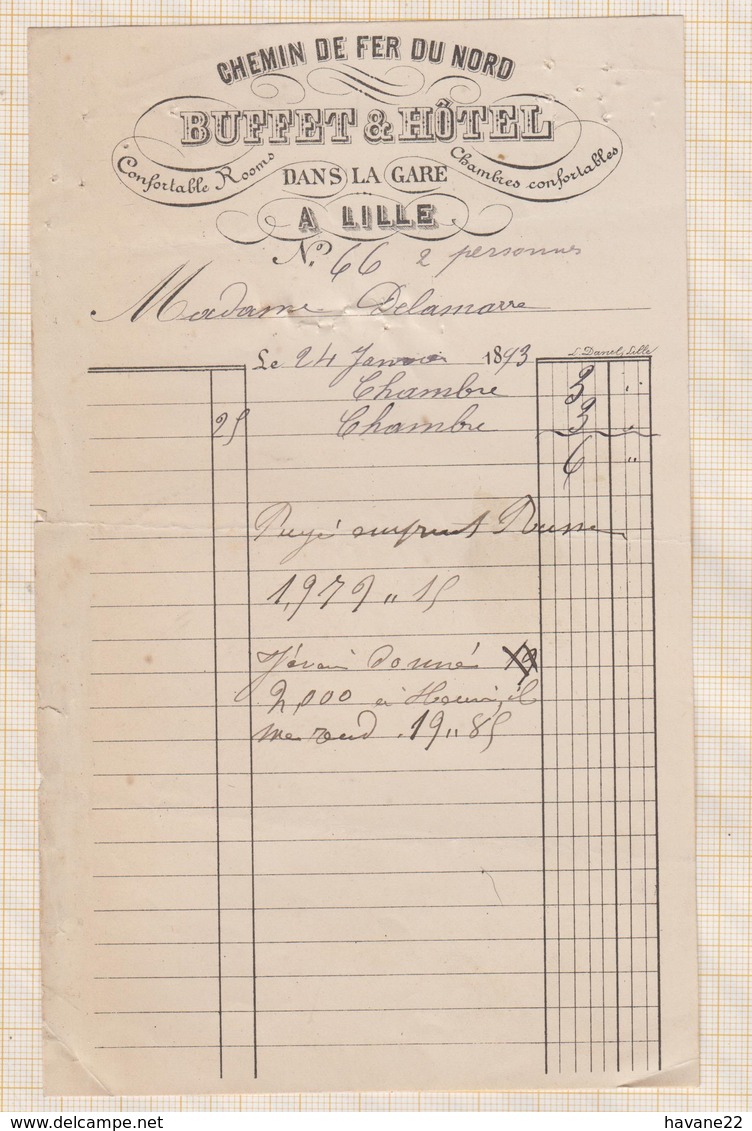 CHEMIN DE FER DU NORD
BUFFET & HÔTEL
Confortable Rooms DANS LA GARE Chambres confortables
A LILLE.
No. 66 2 personnes
Madame Delamarre
L. Danel, Lille
Le 24 Janvier 1893
Chambre 3 "
25 Chambre 3 "
6 "
Payé emprunt Russe
1,979 " 15
J'avais donné
2,000 à Henri, il
me rend . 19 " 85
delcampe.net
havane22